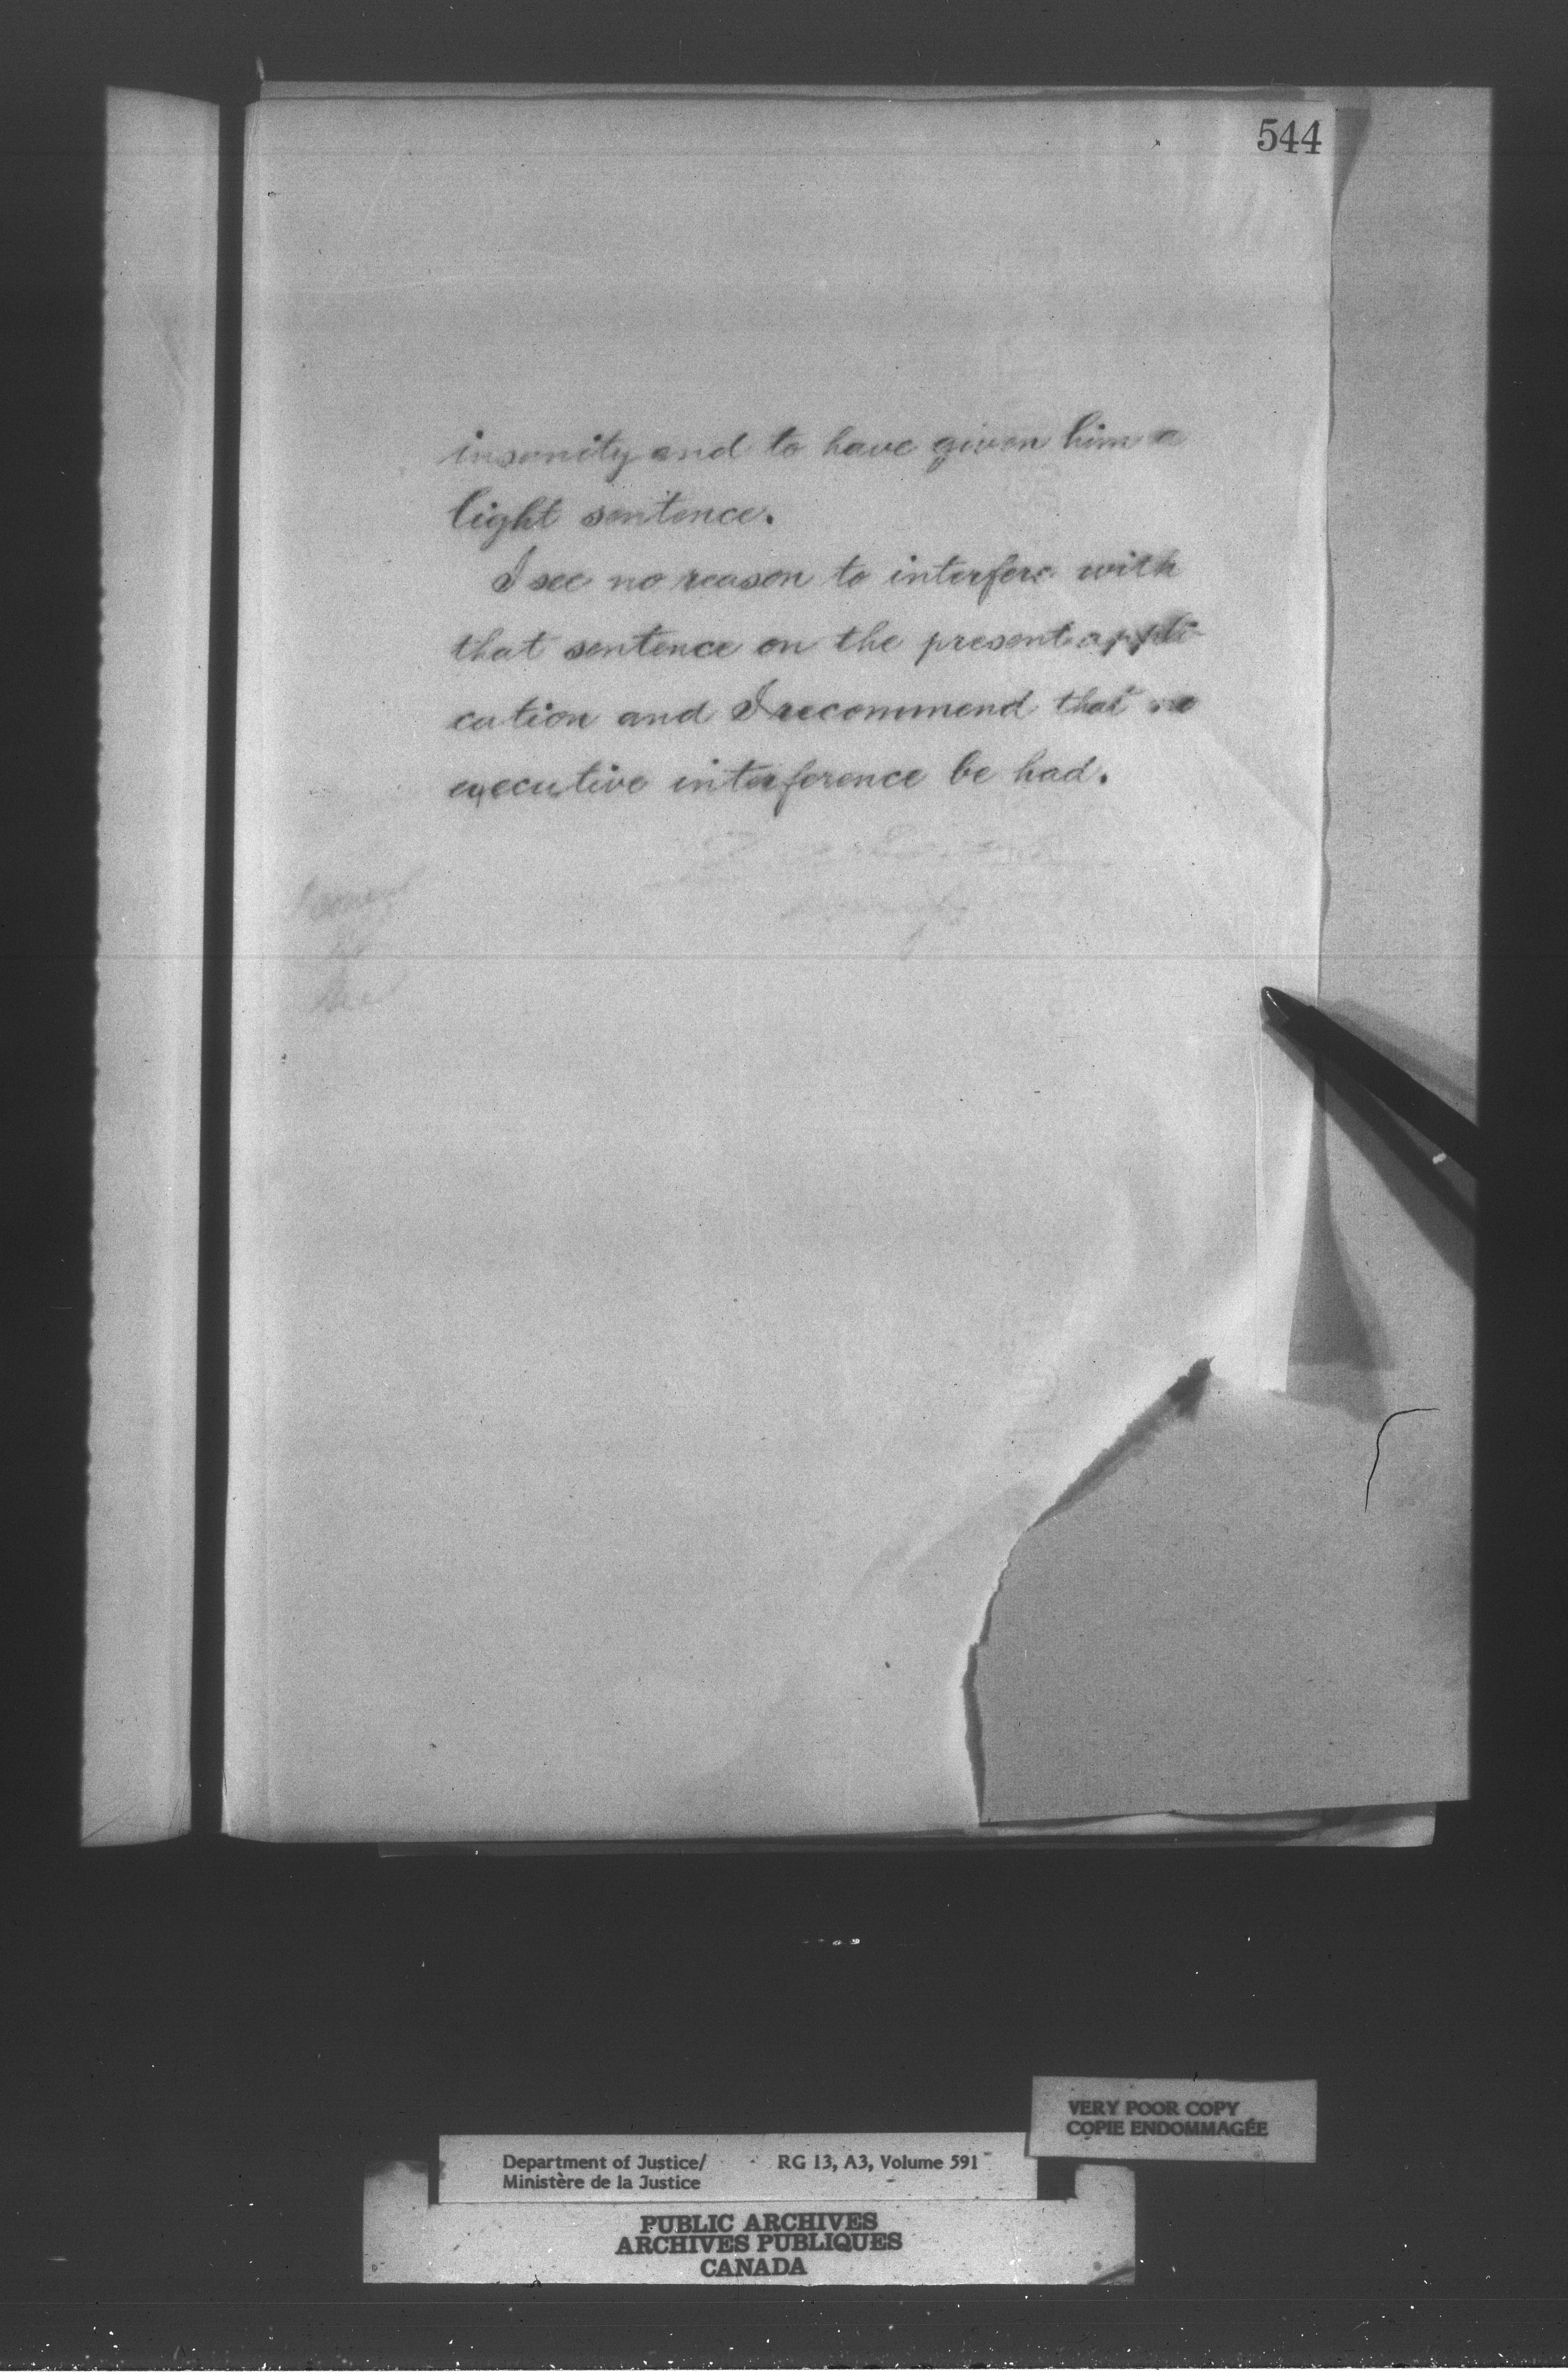 544
insanity and to have given him a
light sentence.
I see no reason to interfere with
that sentence on the present appli-
cation and I recommend that no
executive interference be had.
VERY POOR COPY
COPIE ENDOMMAGÉE
Department of Justice/ RG 13, A3, Volume 591
Ministère de la Justice
PUBLIC ARCHIVES
ARCHIVES PUBLIQUES
CANADA